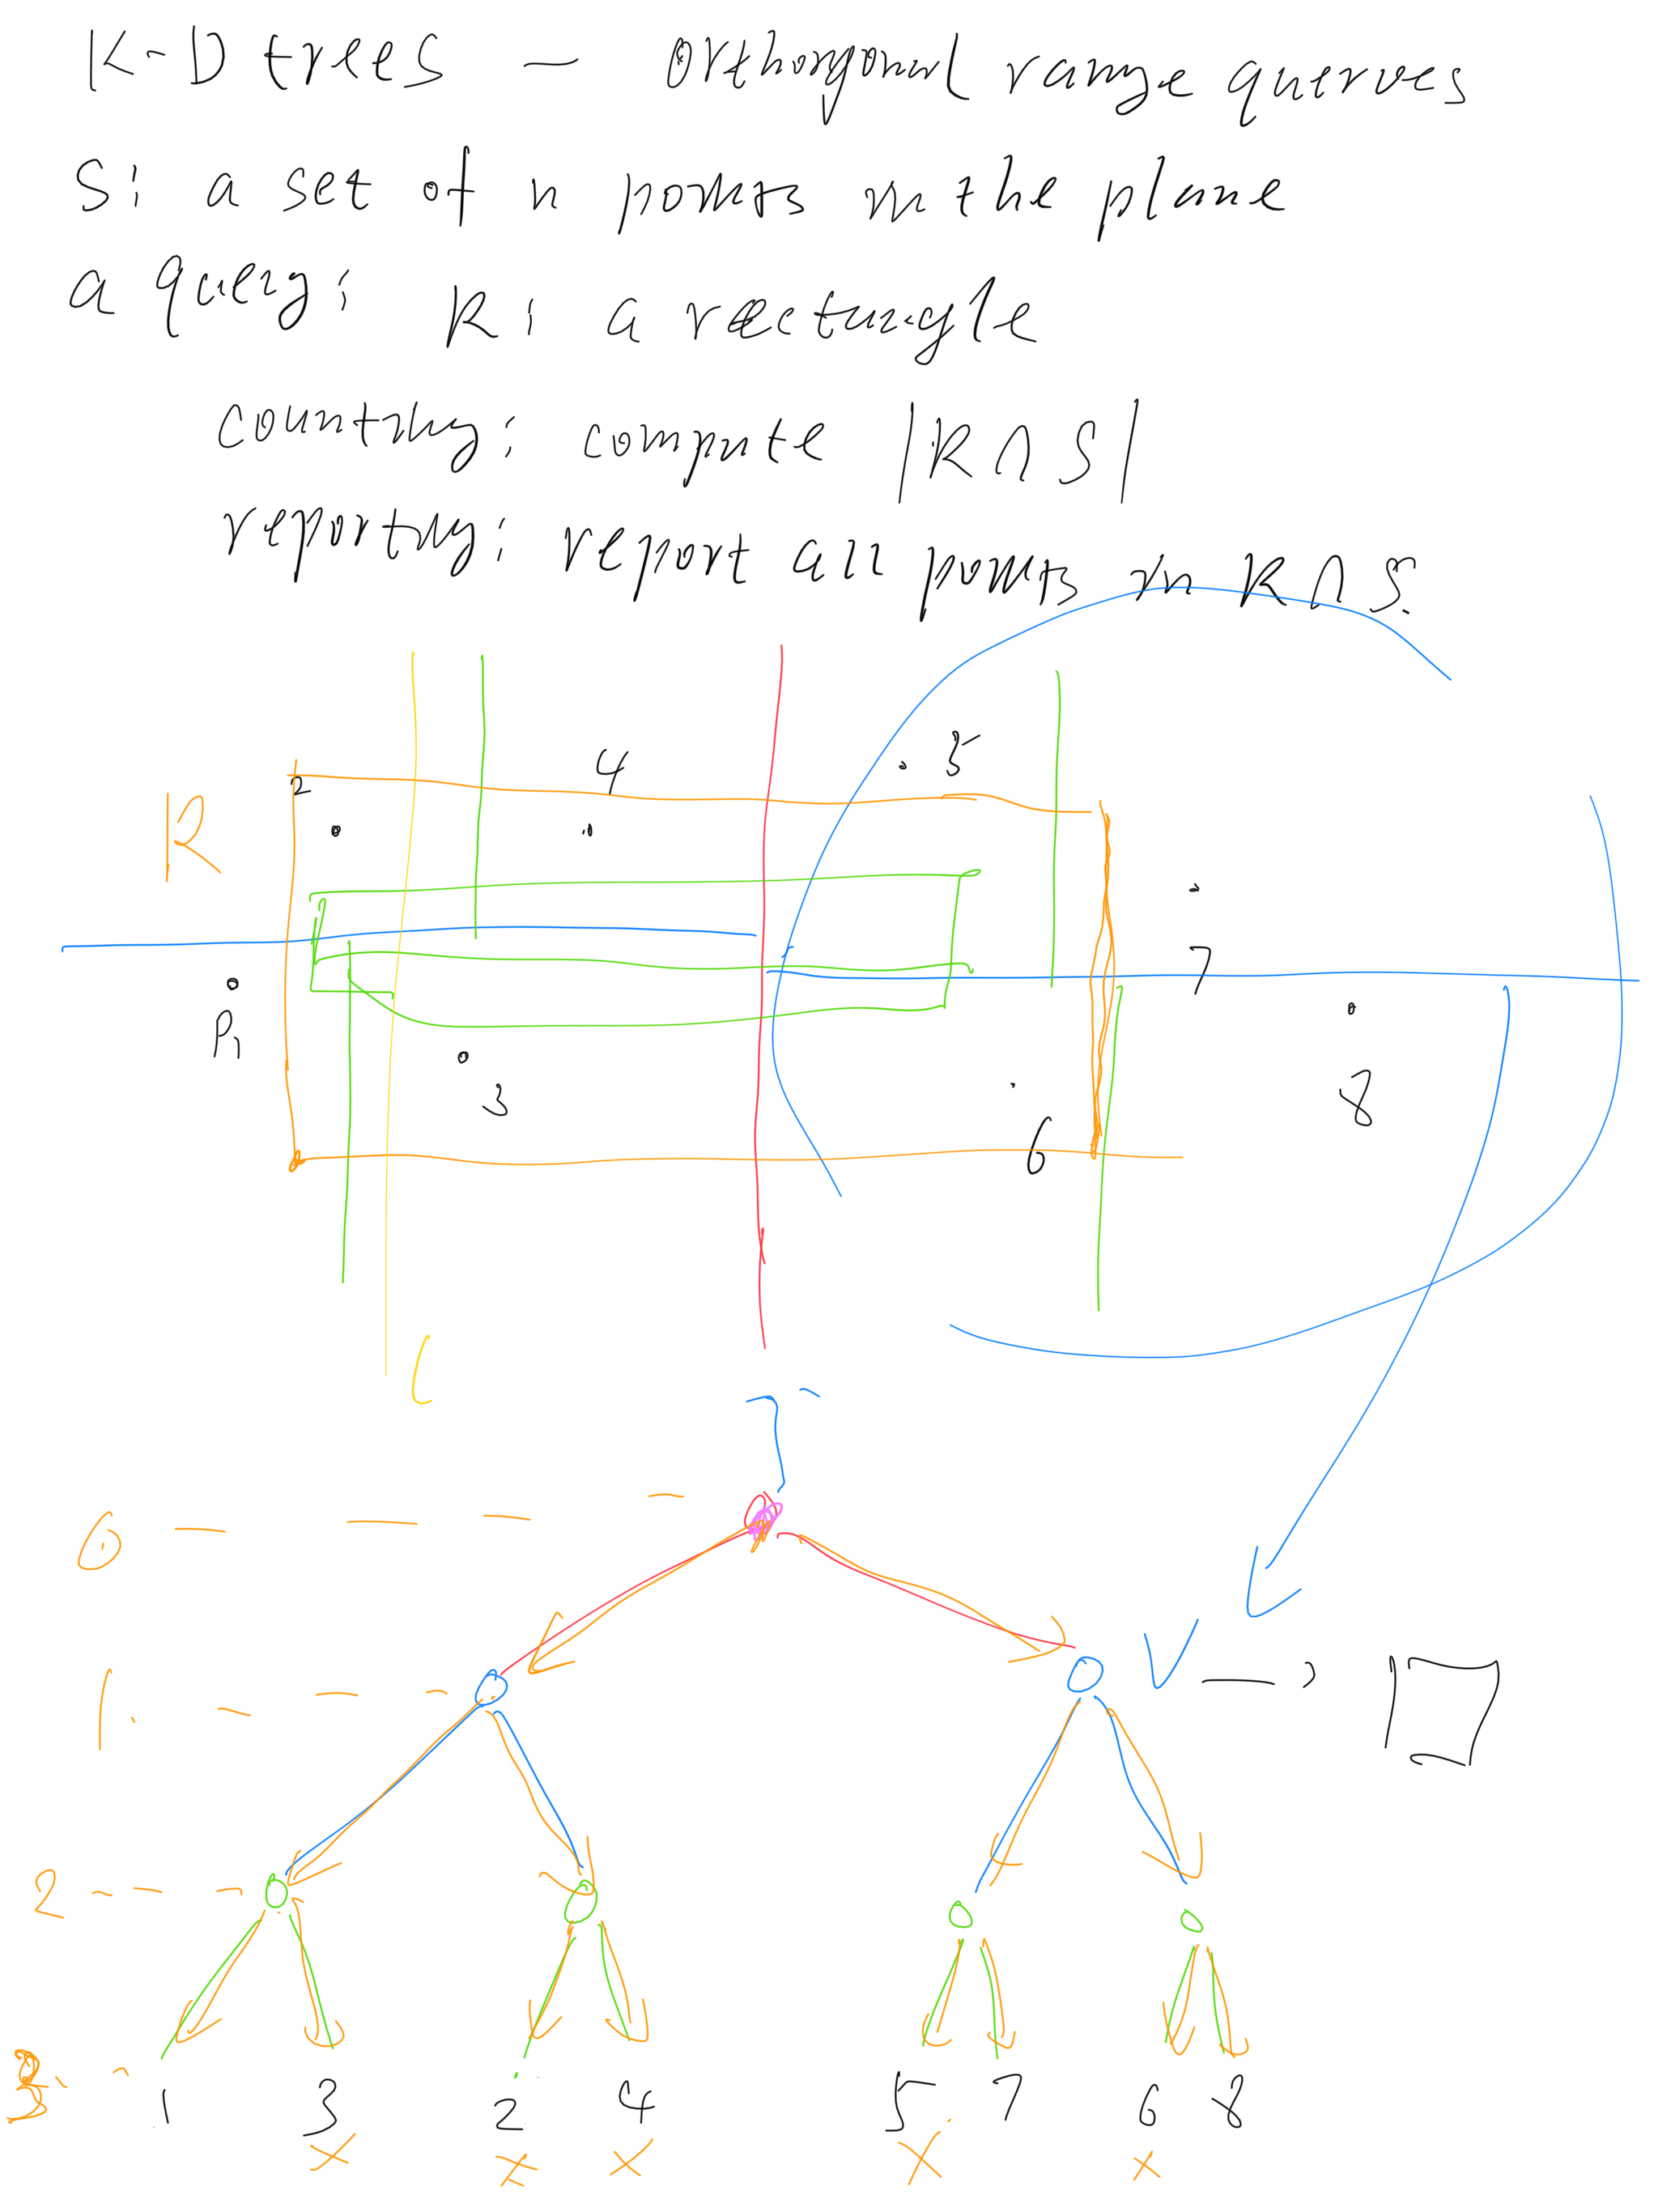 K-D trees — Orthogonal range queries
S: a set of n points in the plane
a query: R: a rectangle
counting: compute |R ∩ S|
reporting: report all points in R ∩ S.
2 4 5
R
7
P1
3 8
6
l
T
0
1.
v
2
3
1 3 2 4 5 7 6 8
x x x x x